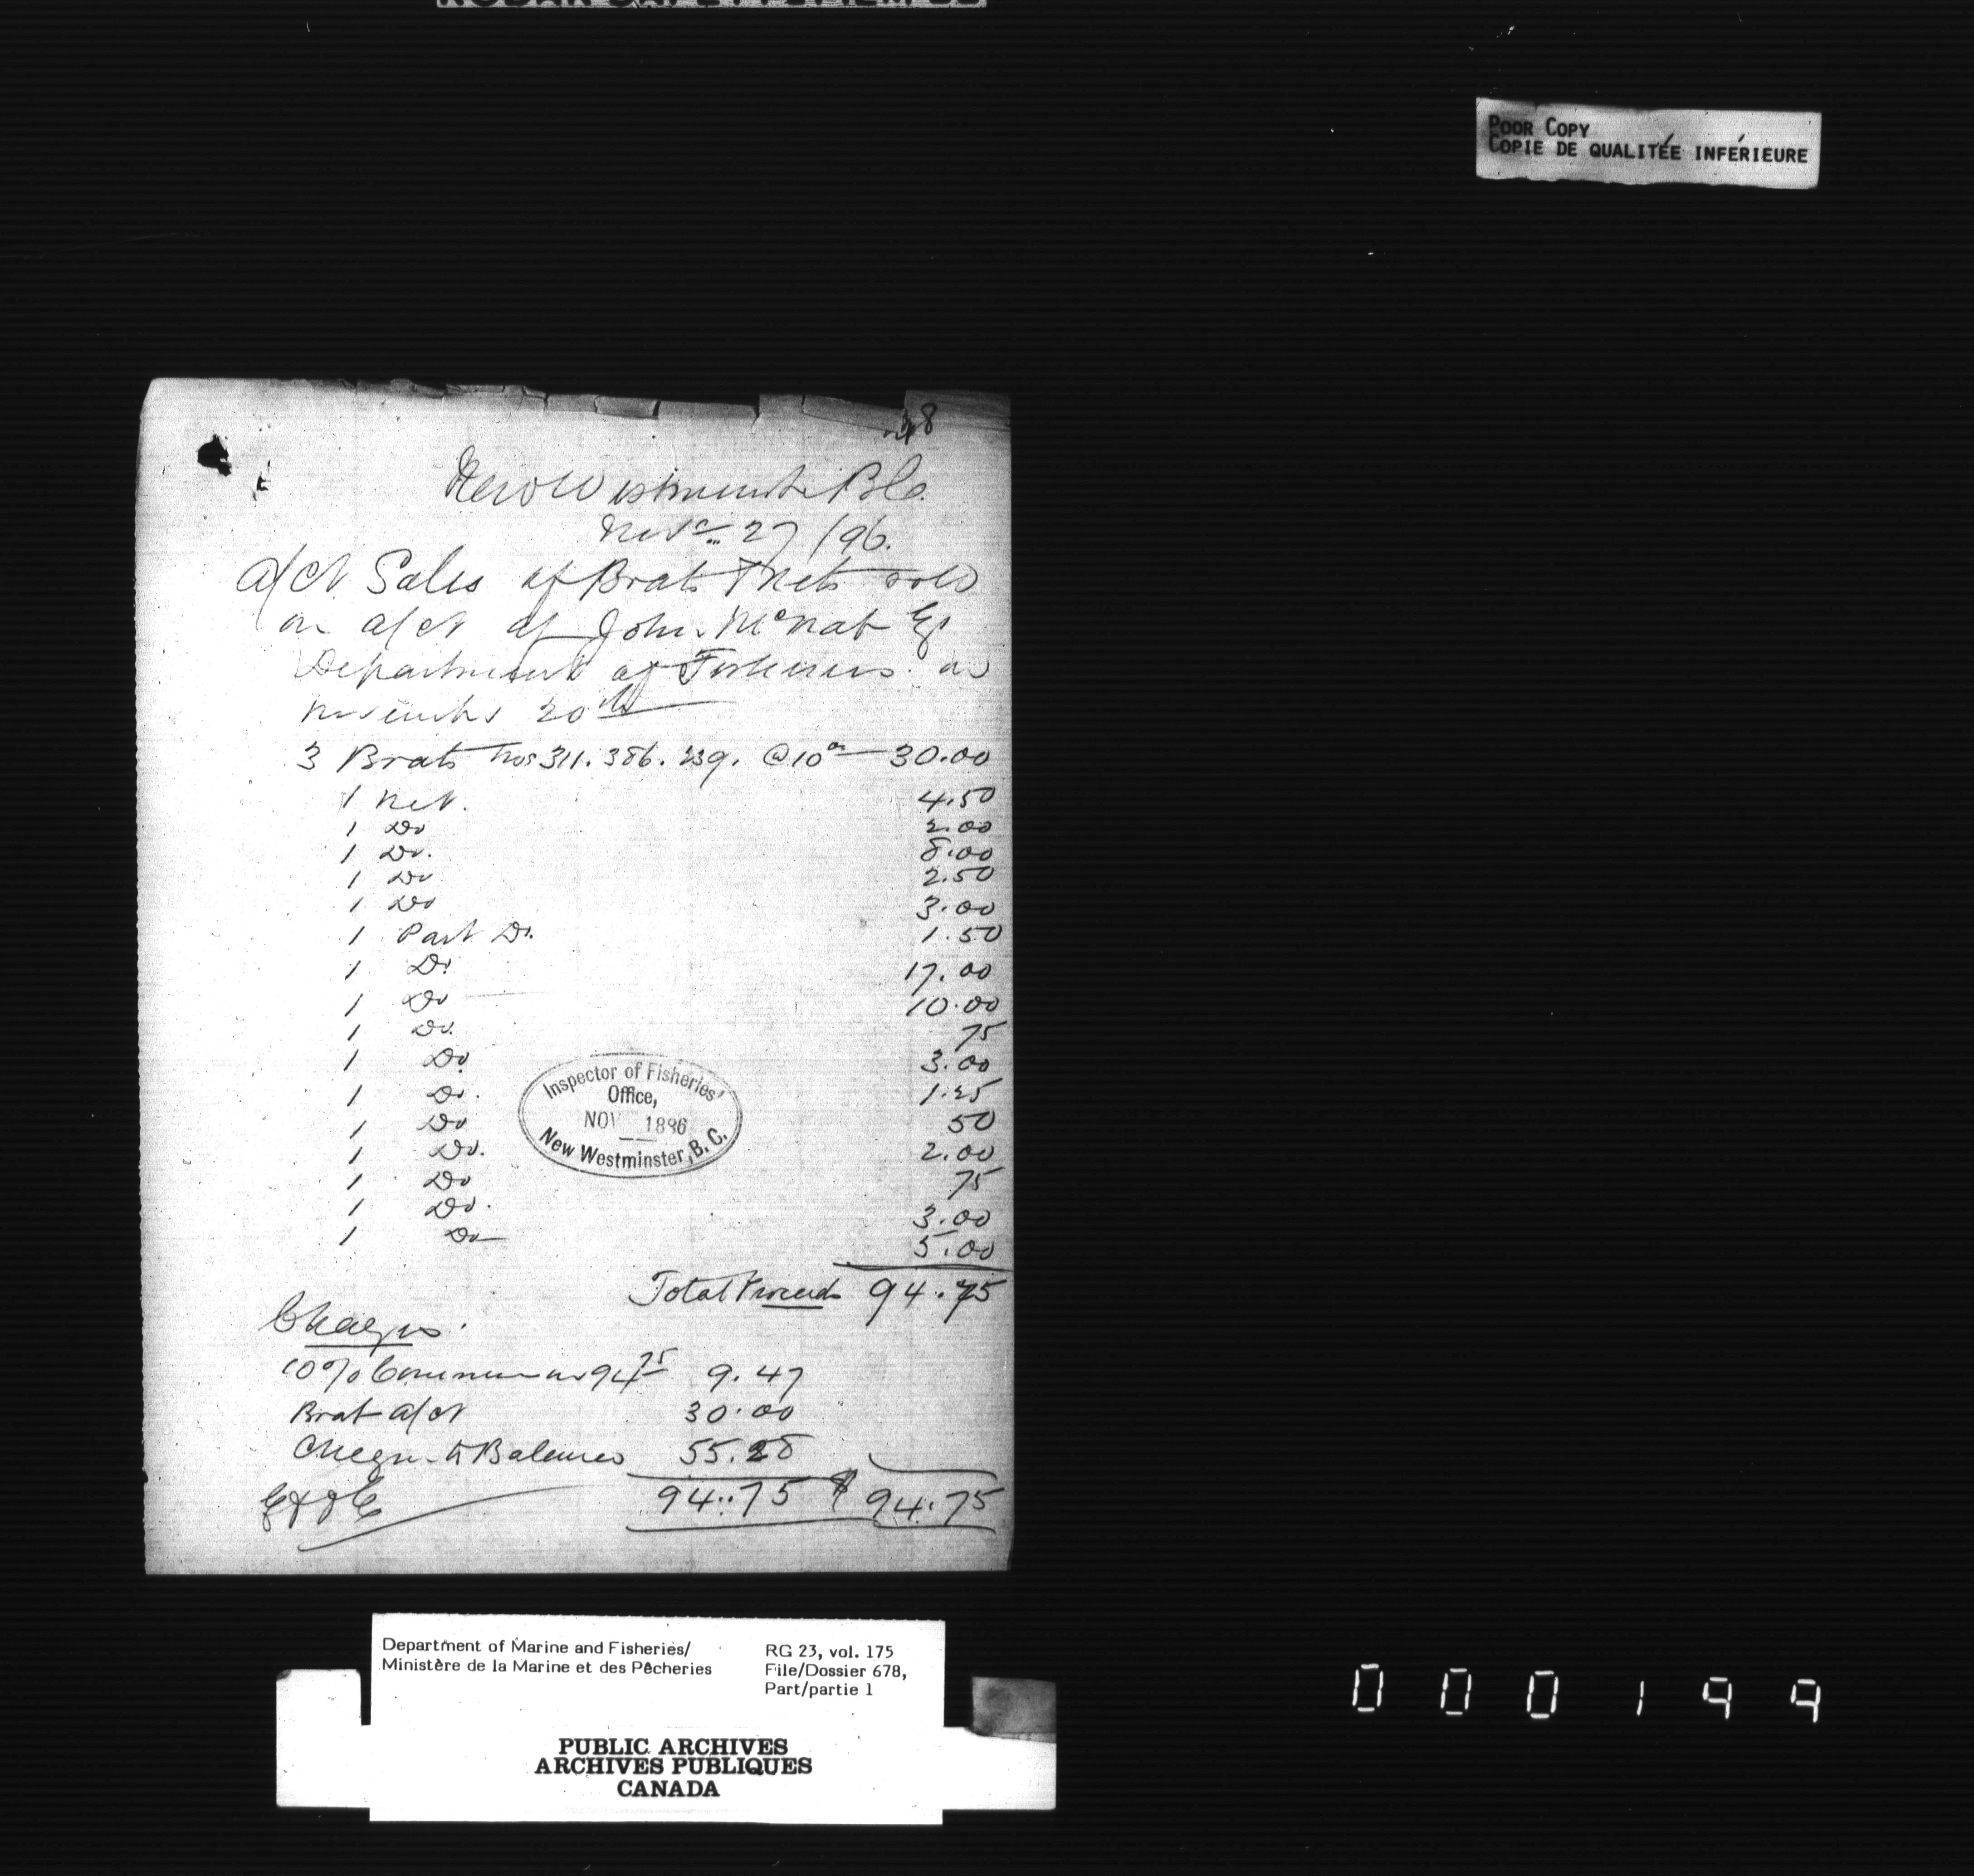 POOR COPY
COPIE DE QUALITÉE INFÉRIEURE
48
New Westminster B.C.
Nov 27 /96.
a/ct Sales of Boats & Nets sold
on a/ct of John McNab Esq
Department of Fisheries on
November 20th
3 Boats Nos 311. 386. 239. @ 10 00 30.00
1 Net. 4.50
1 Do 2.00
1 Do. 8.00
1 Do 2.50
1 Do 3.00
1 Part Do. 1.50
1 Do 17.00
1 Do 10.00
1 Do. 75
1 Do 3.00
1 Do. 1.25
1 Do 50
1 Do. 2.00
1 Do 75
1 Do. 3.00
1 Do 5.00
Inspector of Fisheries'
Office,
NOV 1896
New Westminster, B.C.
Total Proceeds 94.75
Charges.
10% Commission on 94 75 9.47
Boat a/ct 30.00
Cheque to Balance 55.28
E & O E 94.75 $ 94.75
Department of Marine and Fisheries/
Ministère de la Marine et des Pêcheries
RG 23, vol. 175
File/Dossier 678,
Part/partie 1
PUBLIC ARCHIVES
ARCHIVES PUBLIQUES
CANADA
000199